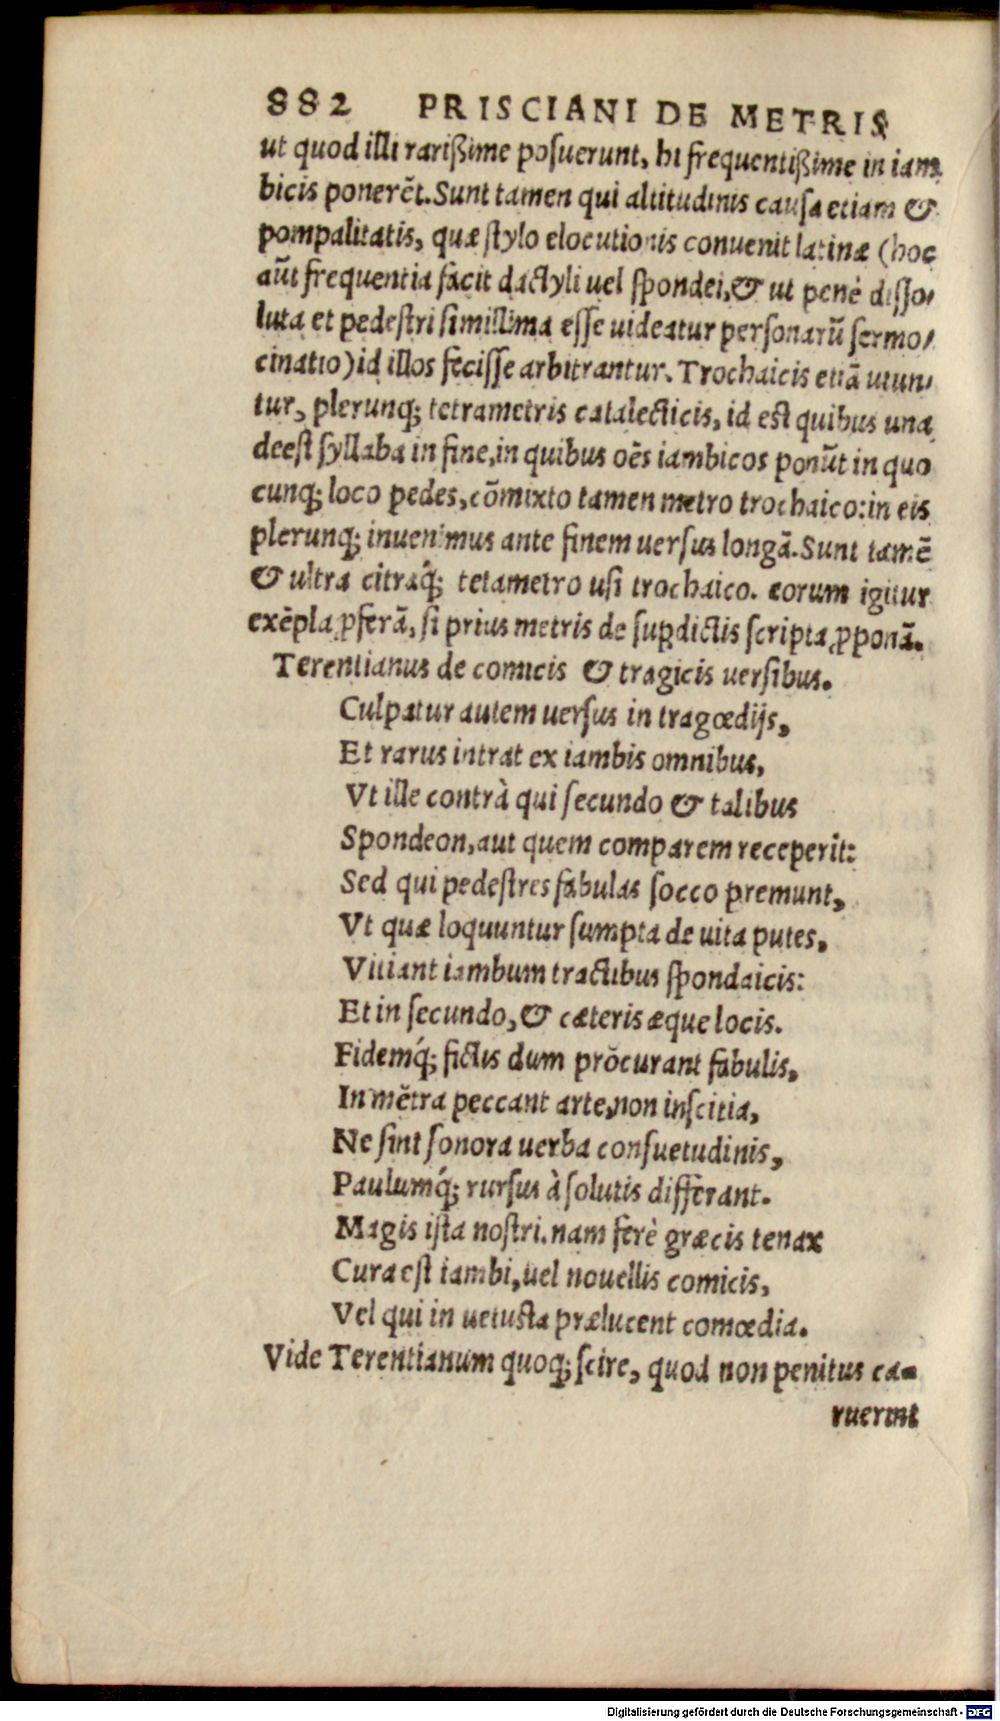 882 PRISCIANI DE METRIS
ut quod illi rarißime posuerunt, hi frequentißime in iam
bicis ponerēt. Sunt tamen qui altitudinis causa etiam &
pompalitatis, quæ stylo elocutionis conuenit latinæ (hoc
aūt frequentia facit dactyli uel spondei, & ut penè disso/
luta et pedestri simillima esse uideatur personarū sermo/
cinatio) id illos fecisse arbitrantur. Trochaicis etiā utun/
tur, plerunq; tetrametris catalecticis, id est quibus una
deest syllaba in fine, in quibus oēs iambicos ponūt in quo
cunq; loco pedes, cōmixto tamen metro trochaico: in eis
plerunq; inuenimus ante finem uersus longā. Sunt tamē
& ultra citraq́; tetametro usi trochaico. eorum igitur
exēpla ꝓferā, si prius metris de suꝑdictis scripta ꝓponā.
Terentianus de comicis & tragicis uersibus.
Culpatur autem uersus in tragœdijs,
Et rarus intrat ex iambis omnibus,
Vt ille contrà qui secundo & talibus
Spondeon, aut quem comparem receperit:
Sed qui pedestres fabulas socco premunt,
Vt quæ loquuntur sumpta de uita putes,
Vitiant iambum tractibus spondaicis:
Et in secundo, & cæteris æque locis.
Fidemq́; fictis dum prōcurant fabulis,
In mētra peccant arte, non inscitia,
Ne sint sonora uerba consuetudinis,
Paulumq́; rursus à solutis differant.
Magis ista nostri. nam ferè græcis tenax
Cura est iambi, uel nouellis comicis,
Vel qui in uetusta prælucent comœdia.
Vide Terentianum quoq; scire, quod non penitus ca-
ruerint
Digitalisierung gefördert durch die Deutsche Forschungsgemeinschaft - DFG